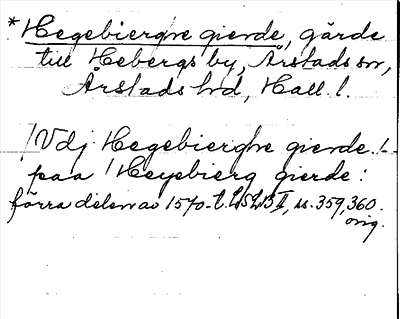 * Hegebierghe gierde, gärde
till Hebergs by, Årstads sn,
Årstads hd, Hall. l.
/Vdj Hegebierghe gierde /-
paa / Heyebierg gierde:
förra delen av 1570-t. LSLB II, ss. 359, 360.
orig.